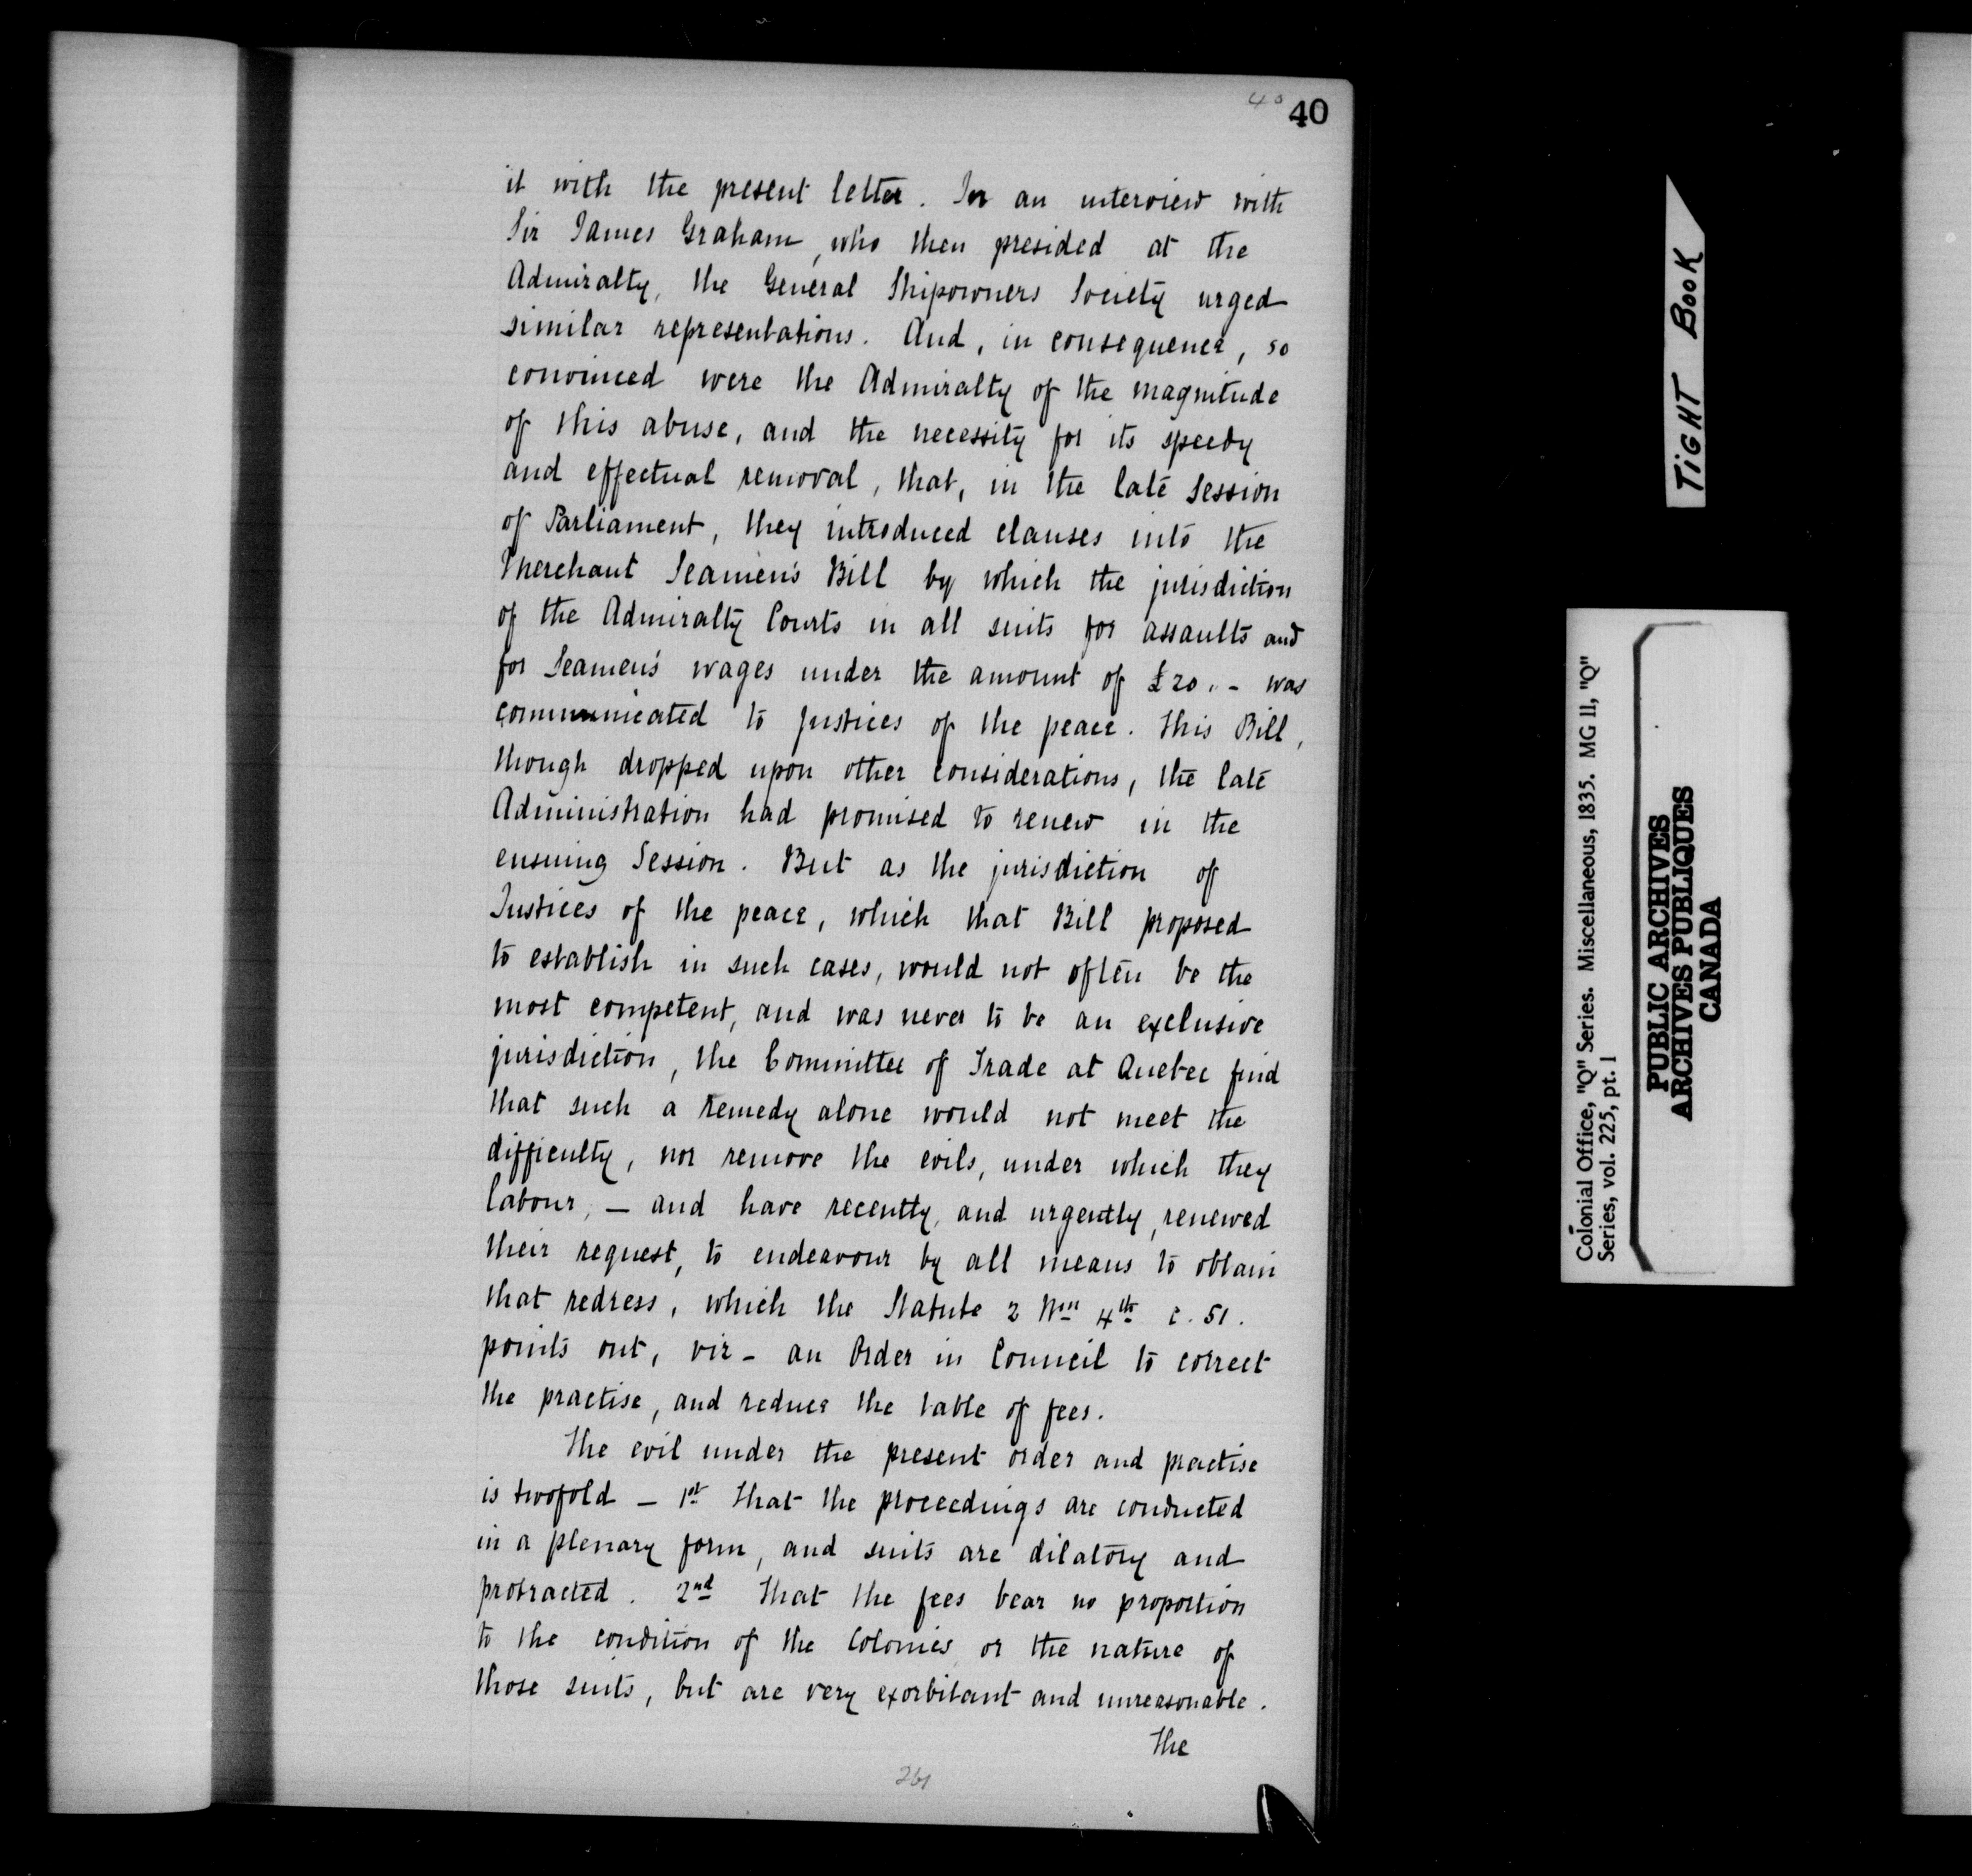 40 40
it with the present letter. In an interview with
Sir James Graham, who then presided at the
Admiralty, the General Shipowners Society urged
similar representations. And, in consequence, so
convinced were the Admiralty of the magnitude
of this abuse, and the necessity for its speedy
and effectual removal, that, in the late Session
of Parliament, they introduced clauses into the
Merchant Seamen's Bill by which the jurisdiction
of the Admiralty Courts in all suits for assaults and
for Seamen's wages under the amount of £20.- was
communicated to justices of the peace. This Bill,
though dropped upon other considerations, the late
Administration had promised to renew in the
ensuing Session. But as the jurisdiction of
Justices of the peace, which that Bill proposed
to establish in such cases, would not often be the
most competent, and was never to be an exclusive
jurisdiction, the Committee of Trade at Quebec find
that such a remedy alone would not meet the
difficulty, nor remove the evils, under which they
labour, — and have recently, and urgently, renewed
their request, to endeavour by all means to obtain
that redress, which the Statute 2 Wm 4th c. 51.
points out, viz - an Order in Council to correct
the practise, and reduce the table of fees.
The evil under the present order and practise
is twofold — 1st That the proceedings are conducted
in a plenary form, and suits are dilatory and
protracted. 2nd That the fees bear no proportion
to the condition of the Colonies, or the nature of
those suits, but are very exorbitant and unreasonable.
The
261
TIGHT BOOK
Colonial Office, "Q" Series. Miscellaneous, 1835. MG 11, "Q"
Series, vol. 225, pt. 1
PUBLIC ARCHIVES
ARCHIVES PUBLIQUES
CANADA